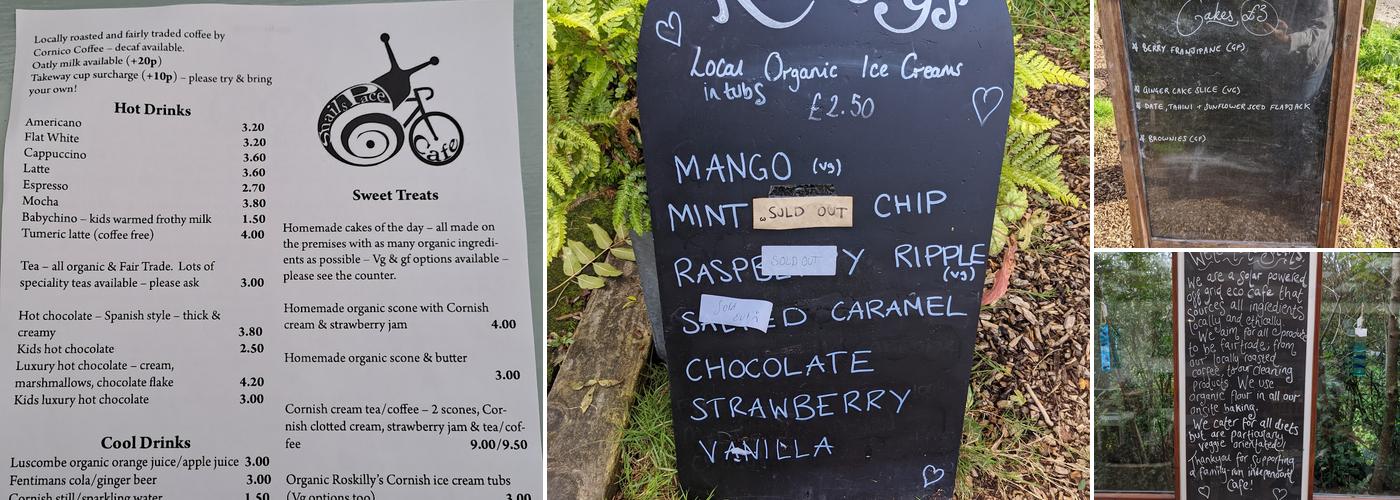 Locally roasted and fairly traded coffee by
Cornico Coffee – decaf available.
Oatly milk available (+20p)
Takeway cup surcharge (+10p) – please try & bring
your own!
Hot Drinks
Americano 3.20
Flat White 3.20
Cappuccino 3.60
Latte 3.60
Espresso 2.70
Mocha 3.80
Babychino – kids warmed frothy milk 1.50
Tumeric latte (coffee free) 4.00
Tea – all organic & Fair Trade. Lots of
speciality teas available – please ask 3.00
Hot chocolate – Spanish style – thick &
creamy 3.80
Kids hot chocolate 2.50
Luxury hot chocolate – cream,
marshmallows, chocolate flake 4.20
Kids luxury hot chocolate 3.00
Cool Drinks
Luscombe organic orange juice/apple juice 3.00
Fentimans cola/ginger beer 3.00
Cornish still/sparkling water 1.50
Snails Pace
Cafe
Sweet Treats
Homemade cakes of the day – all made on
the premises with as many organic ingredi-
ents as possible – Vg & gf options available –
please see the counter.
Homemade organic scone with Cornish
cream & strawberry jam 4.00
Homemade organic scone & butter
3.00
Cornish cream tea/coffee – 2 scones, Cor-
nish clotted cream, strawberry jam & tea/cof-
fee 9.00/9.50
Organic Roskilly's Cornish ice cream tubs
(Vg options too) 3.00
Local Organic Ice Creams
in tubs
£2.50
MANGO (vg)
MINT SOLD OUT CHIP
SOLD OUT RIPPLE
(vg)
Sold out CARAMEL
CHOCOLATE
STRAWBERRY
VANILLA
Cakes £3
BERRY FRANJIPANE (GF)
GINGER CAKE SLICE (VG)
DATE, TAHINI + SUNFLOWER SEED FLAPJACK
BROWNIES (GF)
We are a solar powered
off grid eco cafe that
sources all ingredients
locally and ethically.
We aim for all products
to be fairtrade, from
our locally roasted
coffee to our cleaning
products. We use
organic flour in all our
onsite baking.
We cater for all diets
but are particularly
veggie orientated!
Thankyou for supporting
a family-run independent
cafe!